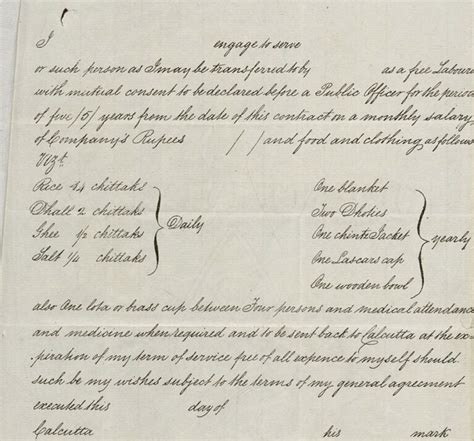 I engage to serve
or such person as I may be transferred to by as a free Laboure
with mutual consent to be declared before a Public Officer for the period
of five /5/ years from the date of this contract on a monthly salary
of Company's Rupees / / and food and clothing as follows
Vizt.
Rice 14 chittaks One blanket
Dhall 2 chittaks Two Dhoties
Ghee 1/2 chittaks Daily One chintz Jacket yearly
Salt 1/4 chittaks One Lascars cap
One wooden bowl
also One lota or brass cup between Four persons and medical attendance
and medicine when required and to be sent back to Calcutta at the ex-
piration of my term of service free of all expence to myself should
such be my wishes subject to the terms of my general agreement
executed this day of
Calcutta his mark